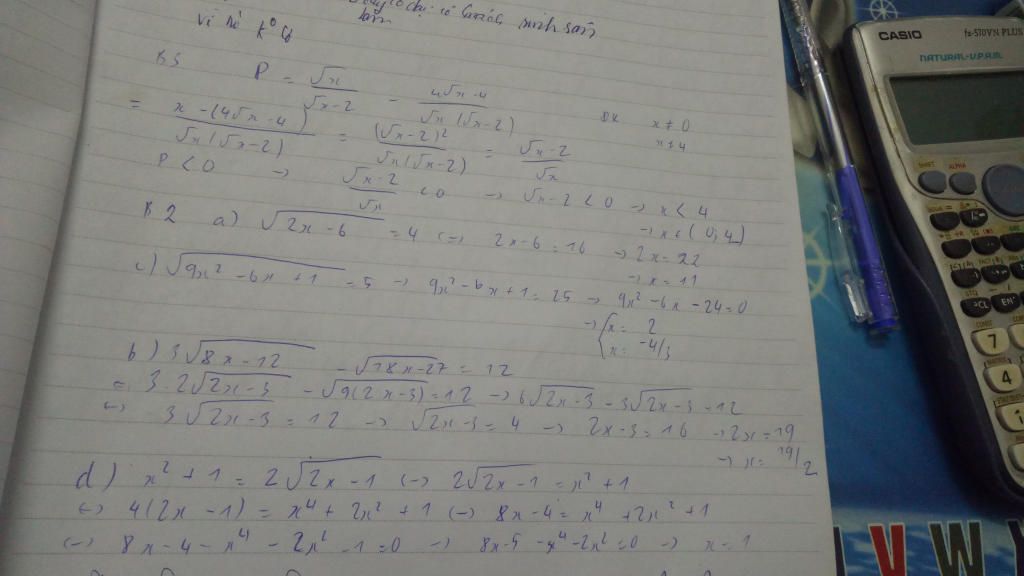 vì hệ k⁰ có
B3 P = √x / (√x-2) - (4√x-4) / (√x(√x-2)) ĐK x≠0
x≠4
= (x-(4√x-4)) / (√x(√x-2)) = (√x-2)² / (√x(√x-2)) = (√x-2) / √x
P < 0 → (√x-2) / √x < 0 → √x-2 < 0 → x < 4
→ x ∈ (0;4)
B2 a) √(2x-6) = 4 (=) 2x-6 = 16 → 2x = 22
→ x = 11
c) √(9x²-6x+1) = 5 → 9x²-6x+1 = 25 → 9x²-6x-24=0
→ { x = 2
x = -4/3
b) 3√(8x-12) - √(18x-27) = 12
= 3.2√(2x-3) - √(9(2x-3)) = 12 → 6√(2x-3) - 3√(2x-3) = 12
↔ 3√(2x-3) = 12 → √(2x-3) = 4 → 2x-3 = 16 → 2x = 19
→ x = 19/2
d) x²+1 = 2√(2x-1) ↔ 2√(2x-1) = x²+1
↔ 4(2x-1) = x⁴+2x²+1 ↔ 8x-4 = x⁴+2x²+1
↔ 8x-4-x⁴-2x²-1=0 → 8x-5-x⁴-2x²=0 → x=1
CASIO fx-570VN PLUS
NATURAL-V.P.A.M.
SHIFT ALPHA
STO
CONST
7
4
1
V W